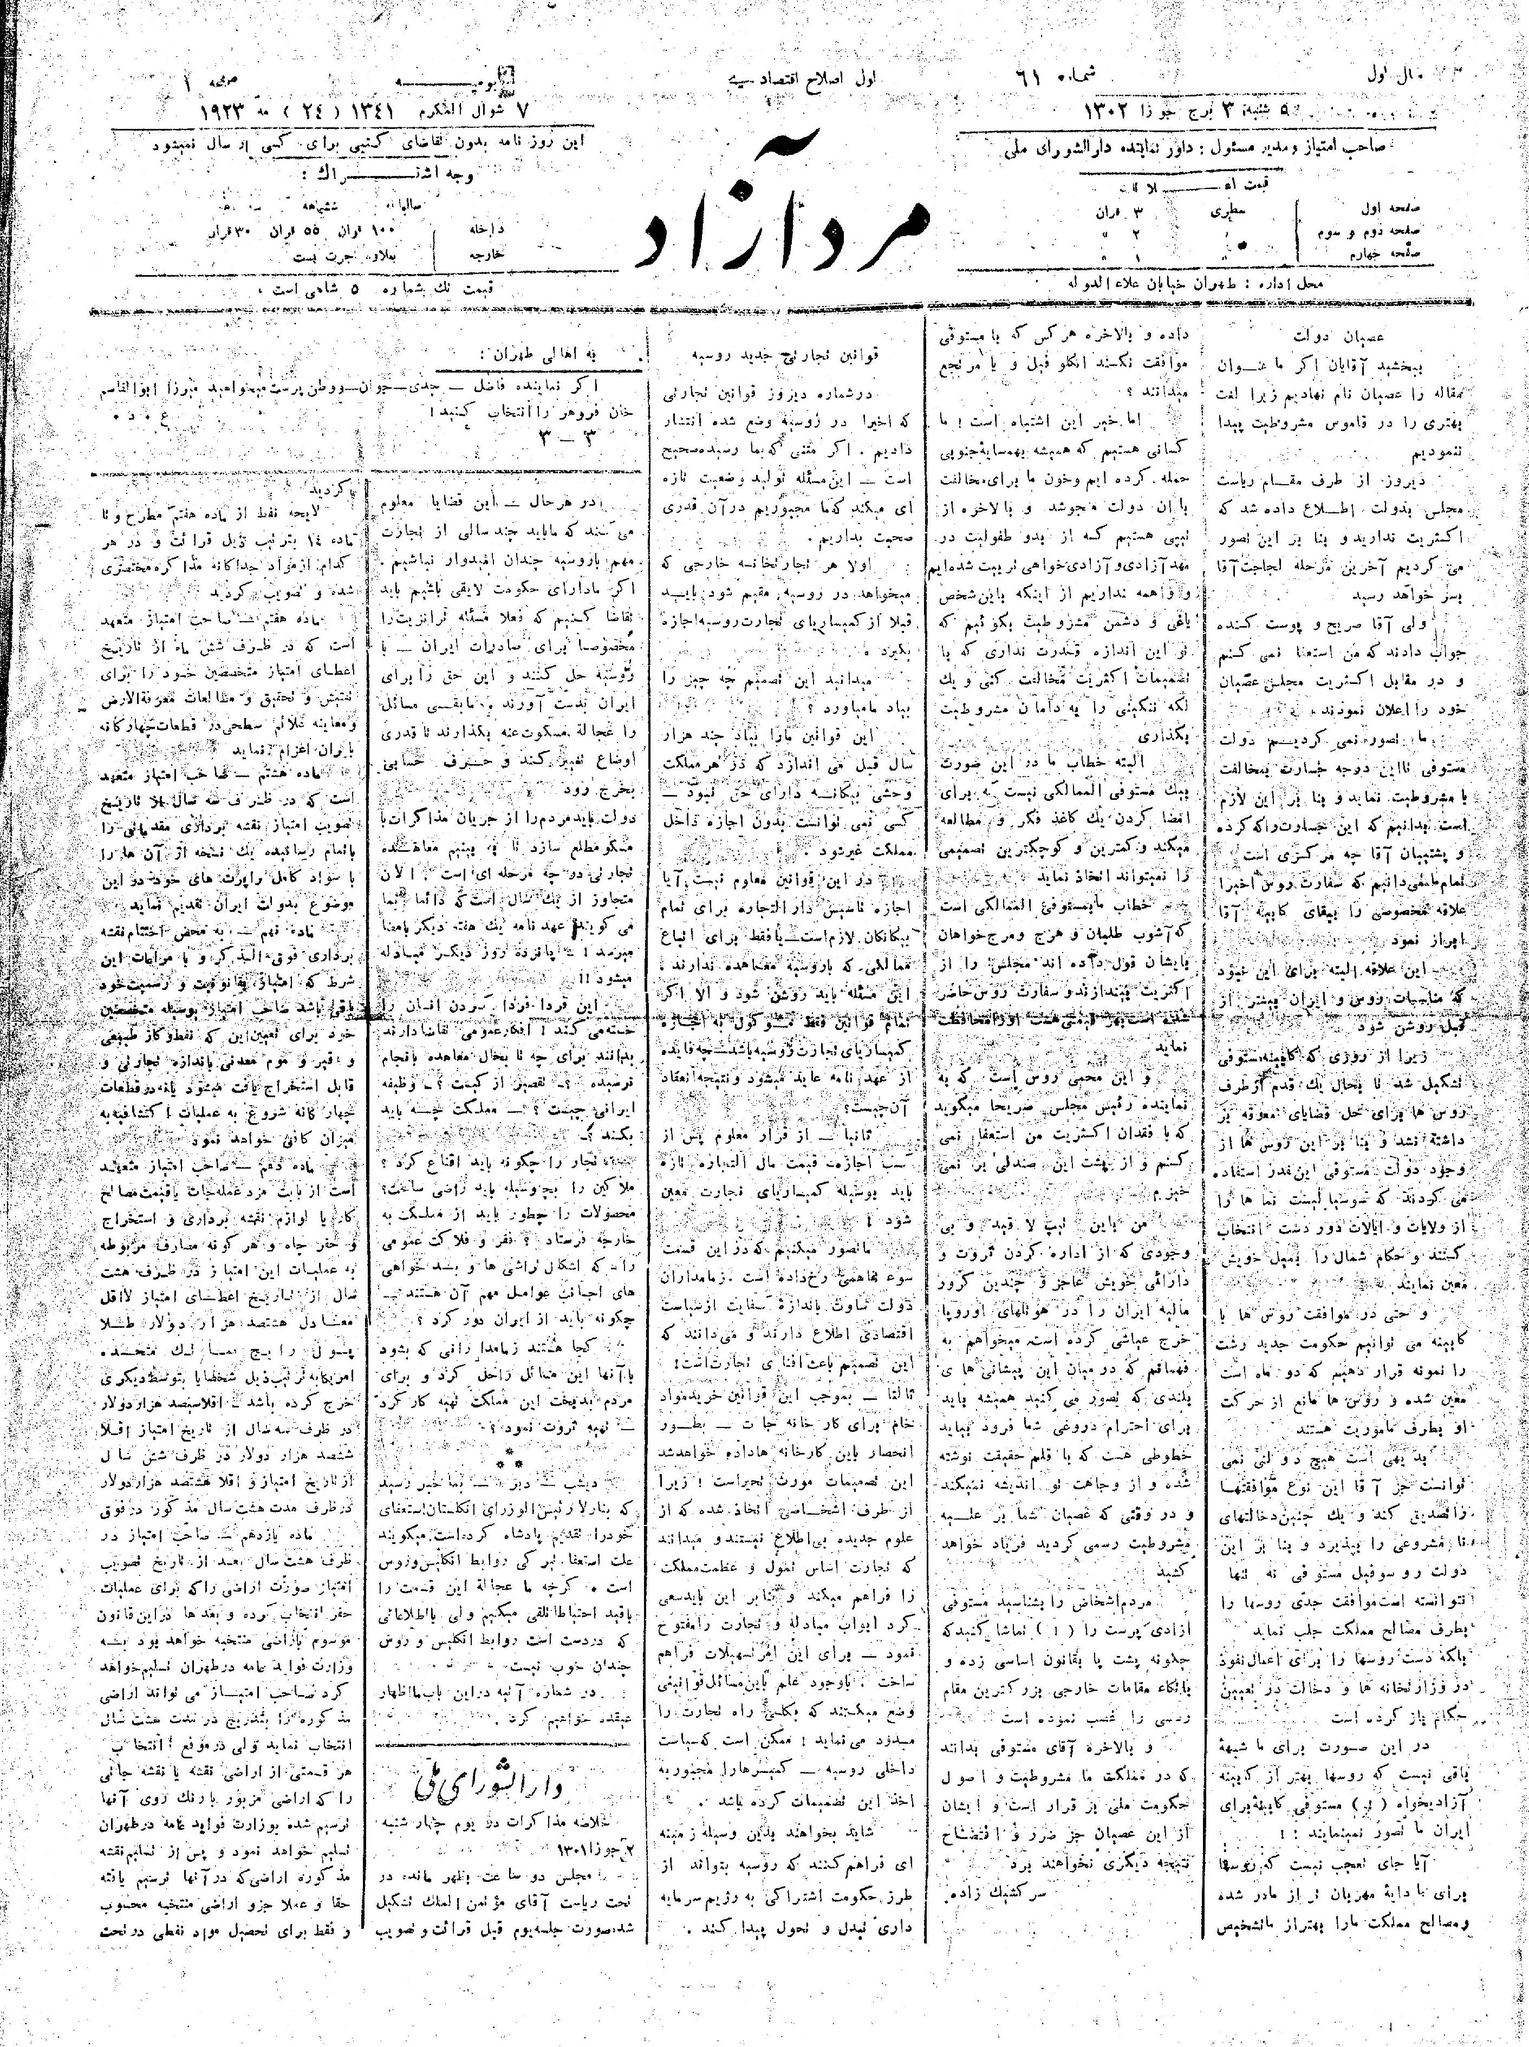 سال اول
شماره ۶۱
اول اصلاح اقتصادی
یومیه
صفحه ۱
۵ شنبه ۳ برج جوزا ۱۳۰۲
۷ شوال المکرم ۱۳۴۱ (۲۴) مه ۱۹۲۳
صاحب امتیاز و مدیر مسئول : داور نماینده دارالشورای ملی
قیمت اعلانات
صفحه اول سطری ۳ قران
صفحه دوم و سوم ۲
صفحه چهارم ۱
محل اداره : طهران خیابان علاءالدوله
مرد آزاد
این روز نامه بدون تقاضای کتبی برای کسی ارسال نمیشود
وجه اشتراك :
سالیانه ششماهه
داخله ۱۰۰ قران ۵۵ قران ۳۰ قران
خارجه بعلاوه اجرت پست
قیمت تك شماره ۵ شاهی است
عصیان دولت
ببخشید آقایان اگر ما عنوان
مقاله را عصیان نام نهادیم زیرا لغت
بهتری را در قاموس مشروطیت پیدا
ننمودیم
دیروز از طرف مقام ریاست
مجلس بدولت اطلاع داده شد که
اکثریت ندارید و بنا بر این تصور
می کردیم آخرین مرحله لجاجت آقا
بسر خواهد رسید
ولی آقا صریح و پوست کنده
جواب دادند که من استعفا نمی کنم
و در مقابل اکثریت مجلس عصیان
خود را اعلان نمودند
ما تصور نمی کردیم دولت
مستوفی تا این درجه جسارت بمخالفت
با مشروطیت نماید و بنا بر این لازم
است بدانیم که این جسارت را که کرده
و پشتیبان آقا چه مرکزی است
تمام ما میدانیم که سفارت روس اخیرا
علاقه مخصوصی را ببقای کابینه آقا
ابراز نمود
این علاقه البته برای این نبود
که مناسبات روس و ایران بیشتر از
قبل روشن شود
زیرا از روزی که کابینه مستوفی
تشکیل شد تا بحال یك قدم از طرف
روس ها برای حل قضایای معوقه بر
داشته نشد و بنا بر این روس ها از
وجود دولت مستوفی این قدر استفاده
می کردند که سوسیالیست نما ها را
از ولایات و ایالات دور دست انتخاب
کنند و حکام شمال را بمیل خویش
معین نمایند
و حتی در موافقت روس ها با
کابینه می توانیم حکومت جدید رشت
را نمونه قرار دهیم که دو ماه است
معین شده و روس ها مانع از حرکت
او بطرف ماموریت هستند
بدیهی است هیچ دولتی نمی
توانست جز آقا این نوع موافقتها
را تصدیق کند و یك چنین دخالتهای
نا مشروعی را بپذیرد و بنا بر این
دولت روسوفیل مستوفی نه تنها
نتوانسته است موافقت جدی روسها را
بطرف مصالح مملکت جلب نماید
بلکه دست روسها را برای اعمال نفوذ
در وزارتخانه ها و دخالت در تعیین
حکام باز کرده است
در این صورت برای ما شبهه
باقی نیست که روسها بهتر از کابینه
آزادیخواه (!) مستوفی کابینه برای
ایران ما تصور نمینمایند !
آیا جای تعجب نیست که روسها
برای ما دایه مهربان تر از مادر شده
و مصالح مملکت ما را بهتر از ما تشخیص
داده و بالاخره هر کس که با مستوفی
موافقت نکند انگلوفیل و یا مرتجع
میدانند ؟
اما خیر این اشتباه است ! ما
کسانی هستیم که همیشه بهمسایه جنوبی
حمله کرده ایم و خون ما برای مخالفت
با آن دولت میجوشد و بالاخره از
تیپی هستیم که از بدو طفولیت در
مهد آزادی و آزادی خواهی تربیت شده ایم
و واهمه نداریم از اینکه باین شخص
یاغی و دشمن مشروطیت بگوئیم که
تو این اندازه قدرت نداری که با
تصمیمات اکثریت مخالفت کنی و یك
لکه ننگینی را به دامان مشروطیت
بگذاری
البته خطاب ما در این صورت
بیك مستوفی الممالکی نیست که برای
امضا کردن یك کاغذ فکر و مطالعه
میکند و کمترین و کوچکترین تصمیمی
را نمیتواند اتخاذ نماید
خطاب ما بمستوفی الممالکی است
که آشوب طلبان و هرج و مرج خواهان
بایشان قول داده اند مجلس را از
اکثریت بیندازند و سفارت روس حاضر
شده است بهر قیمتی هست او را محافظت
نماید
و این محبی روس است که به
نماینده رئیس مجلس صریحا میگوید
که با فقدان اکثریت من استعفا نمی
کنم و از پشت این صندلی بر نمی
خیزم
من باین تیپ لا قید و بی
وجودی که از اداره کردن ثروت و
دارائی خویش عاجز و چندین کرور
مالیه ایران را در هوتلهای اوروپا
خرج عیاشی کرده است میخواهم به
فهمانم که در میان این پیشانی های
بلندی که تصور می کنید همیشه باید
برای احترام دروغی شما فرود بیاید
خطوطی هست که با قلم حقیقت نوشته
شده و از وجاهت تو اندیشه نمیکند
و در وقتی که عصیان شما بر علیه
مشروطیت رسمی گردید فریاد خواهد
کشید
مردم اشخاص را بشناسید مستوفی
آزادی پرست را (!) تماشا کنید که
چگونه پشت پا بقانون اساسی زده و
باتکاء مقامات خارجی بزرگترین مقام
رسمی را غصب نموده است
و بالاخره آقای مستوفی بدانند
که در مملکت ما مشروطیت و اصول
حکومت ملی بر قرار است و ایشان
از این عصیان جز ضرر و افتضاح
نتیجه دیگری نخواهند برد
سرکشیك زاده
قوانین تجارتی جدید روسیه
در شماره دیروز قوانین تجارتی
که اخیرا در روسیه وضع شده انتشار
دادیم . اگر متنی که بما رسیده صحیح
است ــ این مسئله تولید وضعیت تازه
ای میکند که ما مجبوریم در آن قدری
صحبت بداریم .
اولا هر تجارتخانه خارجی که
میخواهد در روسیه مقیم شود باید
قبلا از کمیساریای تجارت روسیه اجازه
بگیرد
میدانید این تصمیم چه چیز را
بیاد ما میاورد ؟
این قوانین ما را بیاد چند هزار
سال قبل می اندازد که در هر مملکت
وحشی بیگانه دارای حق نبود ــ
کسی نمی توانست بدون اجازه داخل
مملکت غیر شود .
در این قوانین معلوم نیست آیا
اجازه تاسیس دارالتجاره برای تمام
بیگانگان لازم است ــ یا فقط برای اتباع
ممالکی که با روسیه معاهده ندارند ؛
این مسئله باید روشن شود و الا اگر
تمام قوانین فقط موکول به اجازه
کمیساریای تجارت روسیه باشد ــ چه فایده
از عهد نامه عاید میشود و نتیجه انعقاد
آن چیست؟
ثانیا ــ از قرار معلوم پس از
کسب اجازه قیمت مال التجاره تازه
باید بوسیله کمیساریای تجارت معین
شود !
ما تصور میکنیم که در این قسمت
سوء تفاهمی رخ داده است . زمامداران
دولت ساوت باندازه کفایت از سیاست
اقتصادی اطلاع دارند و می دانند که
این تصمیم باعث افنای تجارت است !
ثالثا ــ بموجب این قوانین خرید مواد
خام برای کار خانه جات ــ بطور
انحصار باین کارخانه ها داده خواهد شد
این تصمیمات مورث تحیر است ! زیرا
از طرف اشخاصی اتخاذ شده که از
علوم جدیده بی اطلاع نیستند و میدانند
که تجارت اساس تمول و عظمت مملکت
را فراهم میکند و بنابر این باید سعی
کرد ابواب مبادله و تجارت را مفتوح
نمود ــ برای این امر تسهیلات فراهم
ساخت . با وجود علم باین مسائل قوانینی
وضع میکنند که بکلی راه تجارت را
مسدود می نماید ! ممکن است که سیاست
داخلی روسیه ــ کمیسرها را مجبور به
اخذ این تصمیمات کرده باشد .
شاید بخواهند بدین وسیله زمینه
ای فراهم کنند که روسیه بتواند از
طرز حکومت اشتراکی به رژیم سرمایه
داری تبدل و تحول پیدا کند .
به اهالی طهران :
اگر نماینده فاضل ــ جدی ــ جوان ــ و وطن پرست میخواهید میرزا ابوالقاسم
خان فروهر را انتخاب کنید!
۳ ــ ۳
در هر حال ــ این قضایا معلوم
می کند که ما باید چند سالی از تجارت
مهم با روسیه چندان امیدوار نباشیم .
اگر ما دارای حکومت لایقی باشیم باید
تقاضا کنیم که فعلا مسئله ترانزیت را
مخصوصا برای صادرات ایران ــ با
روسیه حل کنند و این حق را برای
ایران بدست آورند . ما بقی مسائل
را عجالة مسکوت عنه بگذارند تا قدری
اوضاع تغییر کند و حرف حسابی
بخرج رود
دولت باید مردم را از جریان مذاکرات با
مسکو مطلع سازد تا به بینیم معاهده
تجارتی در چه مرحله ای است ؟ الان
متجاوز از یك سال است که دائما بما
می گویند عهد نامه یك هفته دیگر بامضا
میرسد ! ــ پانزده روز دیگر مبادله
میشود !!
این فردا فردا کردن انسان را
خسته می کند ! افکار عمومی تقاضا دارند
بدانند برای چه تا بحال معاهده بانجام
نرسیده ؟ ــ تقصیر از کیست ؟ ــ وظیفه
ایرانی چیست ؟ ــ مملکت چه باید
بکند ؟
تجار را چگونه باید اقناع کرد ؟
ملاکین را بچه وسیله باید راضی ساخت؟
محصولات را چطور باید از مملکت به
خارجه فرستاد ؟ فقر و فلاکت عمومی
را ــ که اشکال تراشی ها و بد خواهی
های اجانب عوامل مهم آن هستند ــ
چگونه باید از ایران دور کرد ؟
کجا هستند زمامدارانی که بشود
با آنها این مسائل را حل کرد و برای
مردم بدبخت این مملکت تهیه کار کرد
ــ تهیه ثروت نمود ؟
**
دیشب ــ دیر ــ بما خبر رسید
که بنارلا رئیس الوزرای انگلستان استعفای
خود را تقدیم پادشاه کرده است میگویند
علت استعفا تیرگی روابط انگلیس و روس
است . گرچه ما عجالة این قسمت را
باقید احتیاط تلقی میکنیم ولی با اطلاعاتی
که در دست است روابط انگلیس و روس
چندان خوب نیست
در شماره آتیه در این باب ما اظهار
عقیده خواهیم کرد .
دارالشورای ملی
خلاصه مذاکرات دو یوم چهارشنبه
۲ جوزا ۱۳۰۱
مجلس دو ساعت بظهر مانده در
تحت ریاست آقای مؤتمن الملك تشکیل
شد صورت جلسه یوم قبل قرائت و تصویب
گردید
لایحه نفط از ماده هفتم مطرح و تا
ماده ۱۴ بترتیب ذیل قرائت و در هر
کدام از مواد جداگانه مذاکره مختصری
شده و تصویب گردید
ماده هفتم ــ صاحب امتیاز متعهد
است که در ظرف شش ماه از تاریخ
اعطای امتیاز متخصصین خود را برای
تفتیش و تحقیق و مطالعات معرفة الارض
و معاینه علائم سطحی در قطعات چهارگانه
بایران اعزام نماید
ماده هشتم ــ صاحب امتیاز متعهد
است که در ظرف سه سال بلا تاریخ
تصویب امتیاز نقشه برداری مقدماتی را
باتمام رسانیده یك نسخه از آن ها را
با سواد کامل راپرت های خود در این
موضوع بدولت ایران تقدیم نماید
ماده نهم ــ به محض اختتام نقشه
برداری فوق الذکر و با مراعات این
شرط که امتیاز بقانونیت و رسمیت خود
باقی باشد صاحب امتیاز بوسیله متخصصین
خود برای تعیین این که نفط و گاز طبیعی
و قیر و موم معدنی باندازه تجارتی و
قابل استخراج یافت میشود یا نه در قطعات
چهار گانه شروع به عملیات اکتشافیه به
میزان کافی خواهد نمود
ماده دهم ــ صاحب امتیاز متعهد
است از بابت مزد عمله جات یا قیمت مصالح
کار یا لوازم نقشه برداری و استخراج
و حفر چاه و هر گونه مصارف مربوطه
به عملیات این امتیاز در ظرف هشت
سال از تاریخ اعطای امتیاز لااقل
معادل هشتصد هزار دولار طلا
پول رایج ممالك متحده
امریکا به ترتیب ذیل شخصا یا بتوسط دیگری
خرج کرده باشد ــ اقلا سیصد هزار دولار
در ظرف سه سال از تاریخ امتیاز اقلا
ششصد هزار دولار در ظرف شش سال
از تاریخ امتیاز و اقلا هشتصد هزار دولار
در ظرف مدت هشت سال مذکور در فوق
ماده یازدهم ــ صاحب امتیاز در
ظرف هشت سال بعد از تاریخ تصویب
امتیاز صورت اراضی را که برای عملیات
حفر انتخاب کرده و بعدها در این قانون
موسوم باراضی منتخبه خواهد بود به
وزارت فواید عامه در طهران تسلیم خواهد
کرد صاحب امتیاز می تواند اراضی
مذکوره را بتدریج در مدت هشت سال
انتخاب نماید ولی در موقع انتخاب
هر قسمتی از اراضی نقشه یا نقشه جاتی
را که اراضی مزبور با رنك روی آنها
ترسیم شده بوزارت فواید عامه در طهران
تسلیم خواهد نمود و پس از تسلیم نقشه
مذکوره اراضی که در آنها ترسیم یافته
حقا و عملا جزو اراضی منتخبه محسوب
و فقط برای تحصیل مواد نفطی در تحت